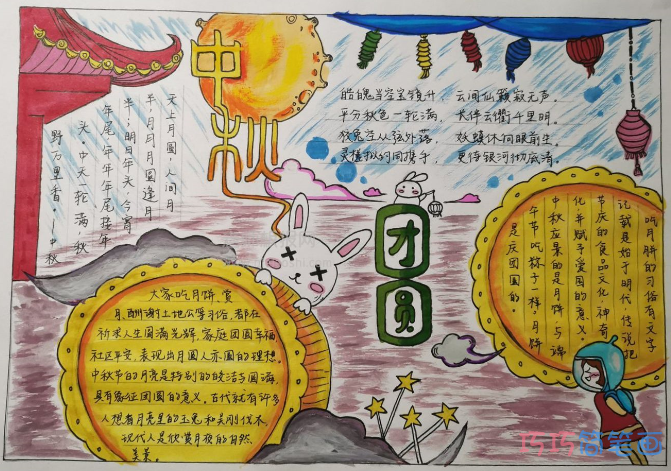 中秋
团圆
天上月圆,人间月
半,月月月圆逢月
半;明日年天,今宵
年尾年年年尾接年
头。中天一轮满,秋
野万里香。——中秋
皓魄当空宝镜升,云间仙籁寂无声。
平分秋色一轮满,长伴云衢千里明。
狡兔空从弦外落,妖蟆休向眼前生。
灵槎拟约同携手,更待银河彻底清
大家吃月饼、赏
月、酬谢土地公等习俗,都在
祈求人生圆满光辉,家庭团圆幸福
社区平安,表现出月圆人亦圆的理想。
中秋节的月亮是特别的皎洁与圆满,
具有象征团圆的意义。古代就有许多
人想着月亮里的玉兔和吴刚伐木
现代人是欣赏月夜的自然
美景。
吃月饼的习俗有文字
记载是始于明代,传说把
节庆的食品文化,神奇
化并赋予爱国的意义。
中秋应景的是月饼,与端
午节吃粽子一样,月饼
是庆团圆的。
巧巧简笔画